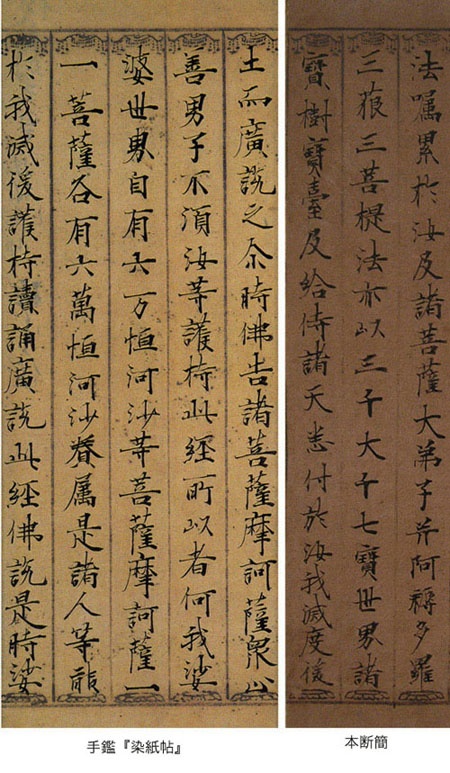 法囑累於汝及諸菩薩大弟子并阿耨多羅
三藐三菩提法亦以三千大千七寶世界諸
寶樹寶臺及給侍諸天悉付於汝我滅度後
土而廣說之尒時佛告諸菩薩摩訶薩眾止
善男子不須汝等護持此經所以者何我娑
婆世界自有六万恒河沙等菩薩摩訶薩一
一菩薩各有六萬恒河沙眷属是諸人等能
於我滅後護持讀誦廣說此經佛說是時娑
本断簡
手鑑『染紙帖』